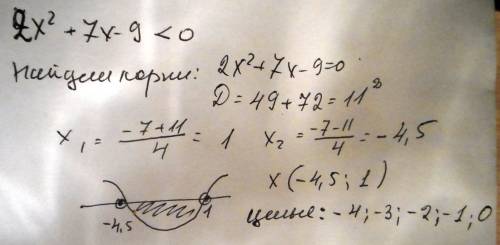 2x² + 7x - 9 < 0
Найдем корни: 2x² + 7x - 9 = 0
D = 49 + 72 = 11²
x₁ = (-7+11)/4 = 1 x₂ = (-7-11)/4 = -4,5
x (-4,5; 1)
-4,5 1
целые: -4; -3; -2; -1; 0